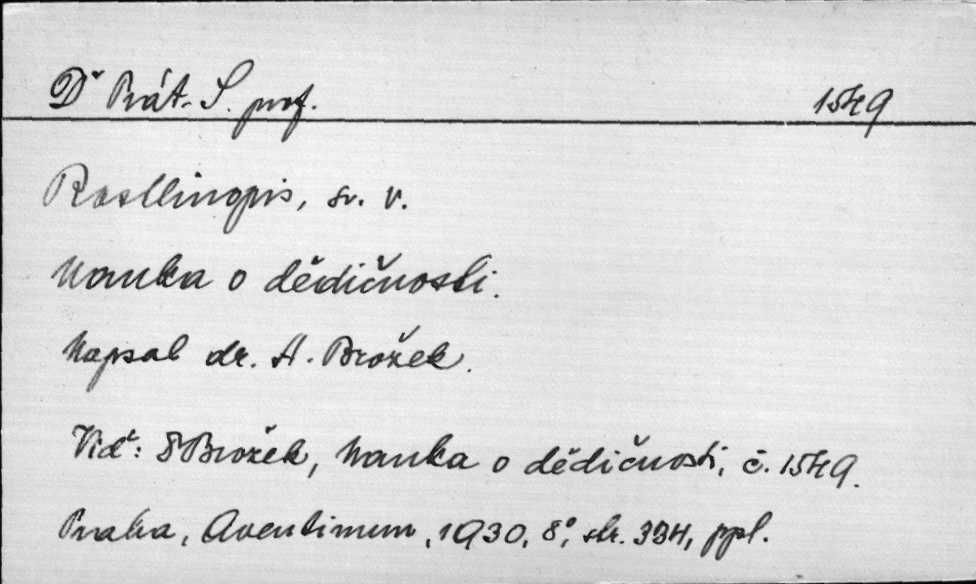 Dr Prát. S. prof. 1549
Rostlinopis, sv. V.
Nauka o dědičnosti.
Napsal dr. A. Brožek.
Viď: Brožek, Nauka o dědičnosti, č. 1549.
Praha, Aventinum, 1930, 8°, str. 334, ppl.